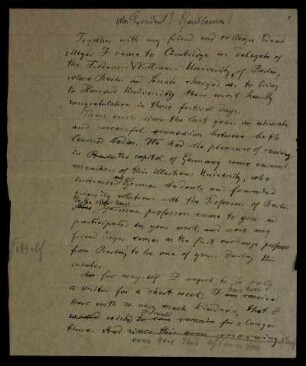 Mr. President! Gentlemen!
Together with my friend and colleague Eduard
Meyer I came to Cambridge as delegate of
the Friedrich Wilhelm University of Berlin,
whose Rector and Senate charged us to bring
to Harvard University their most hearty
congratulation in these festival days.
There exists since the last years an intimate
and successful connexion between both
learned bodies. We had the pleasure of receiving
in the capital of Germany some eminent
members of this illustrious University, who
interested German students and founded
friendly relations with the Professors of Berlin.
German professors came to you and
participated in your work, and now my
friend Meyer comes as the first exchange professor
from Berlin, to be one of your
member.
As for my self I regret to be only
a visitor for a short week. I am received
here with so very much kindness, that I
wish to remain for a longer
time. And